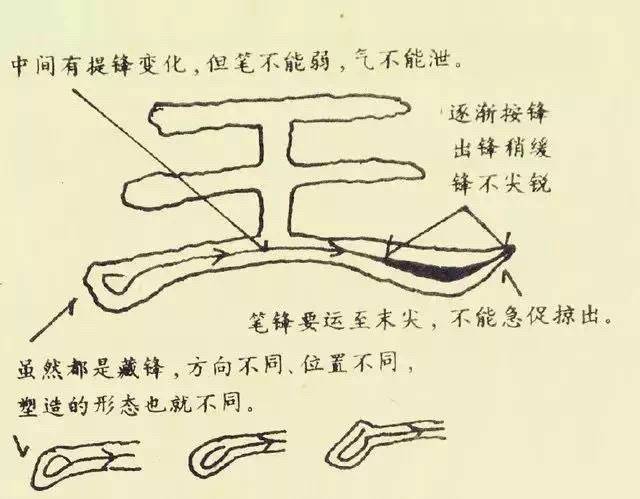 中间有提锋变化，但笔不能弱，气不能泄。
逐渐按锋
出锋稍缓
锋不尖锐
王
笔锋要运至末尖，不能急促掠出。
虽然都是藏锋，方向不同、位置不同，
塑造的形态也就不同。